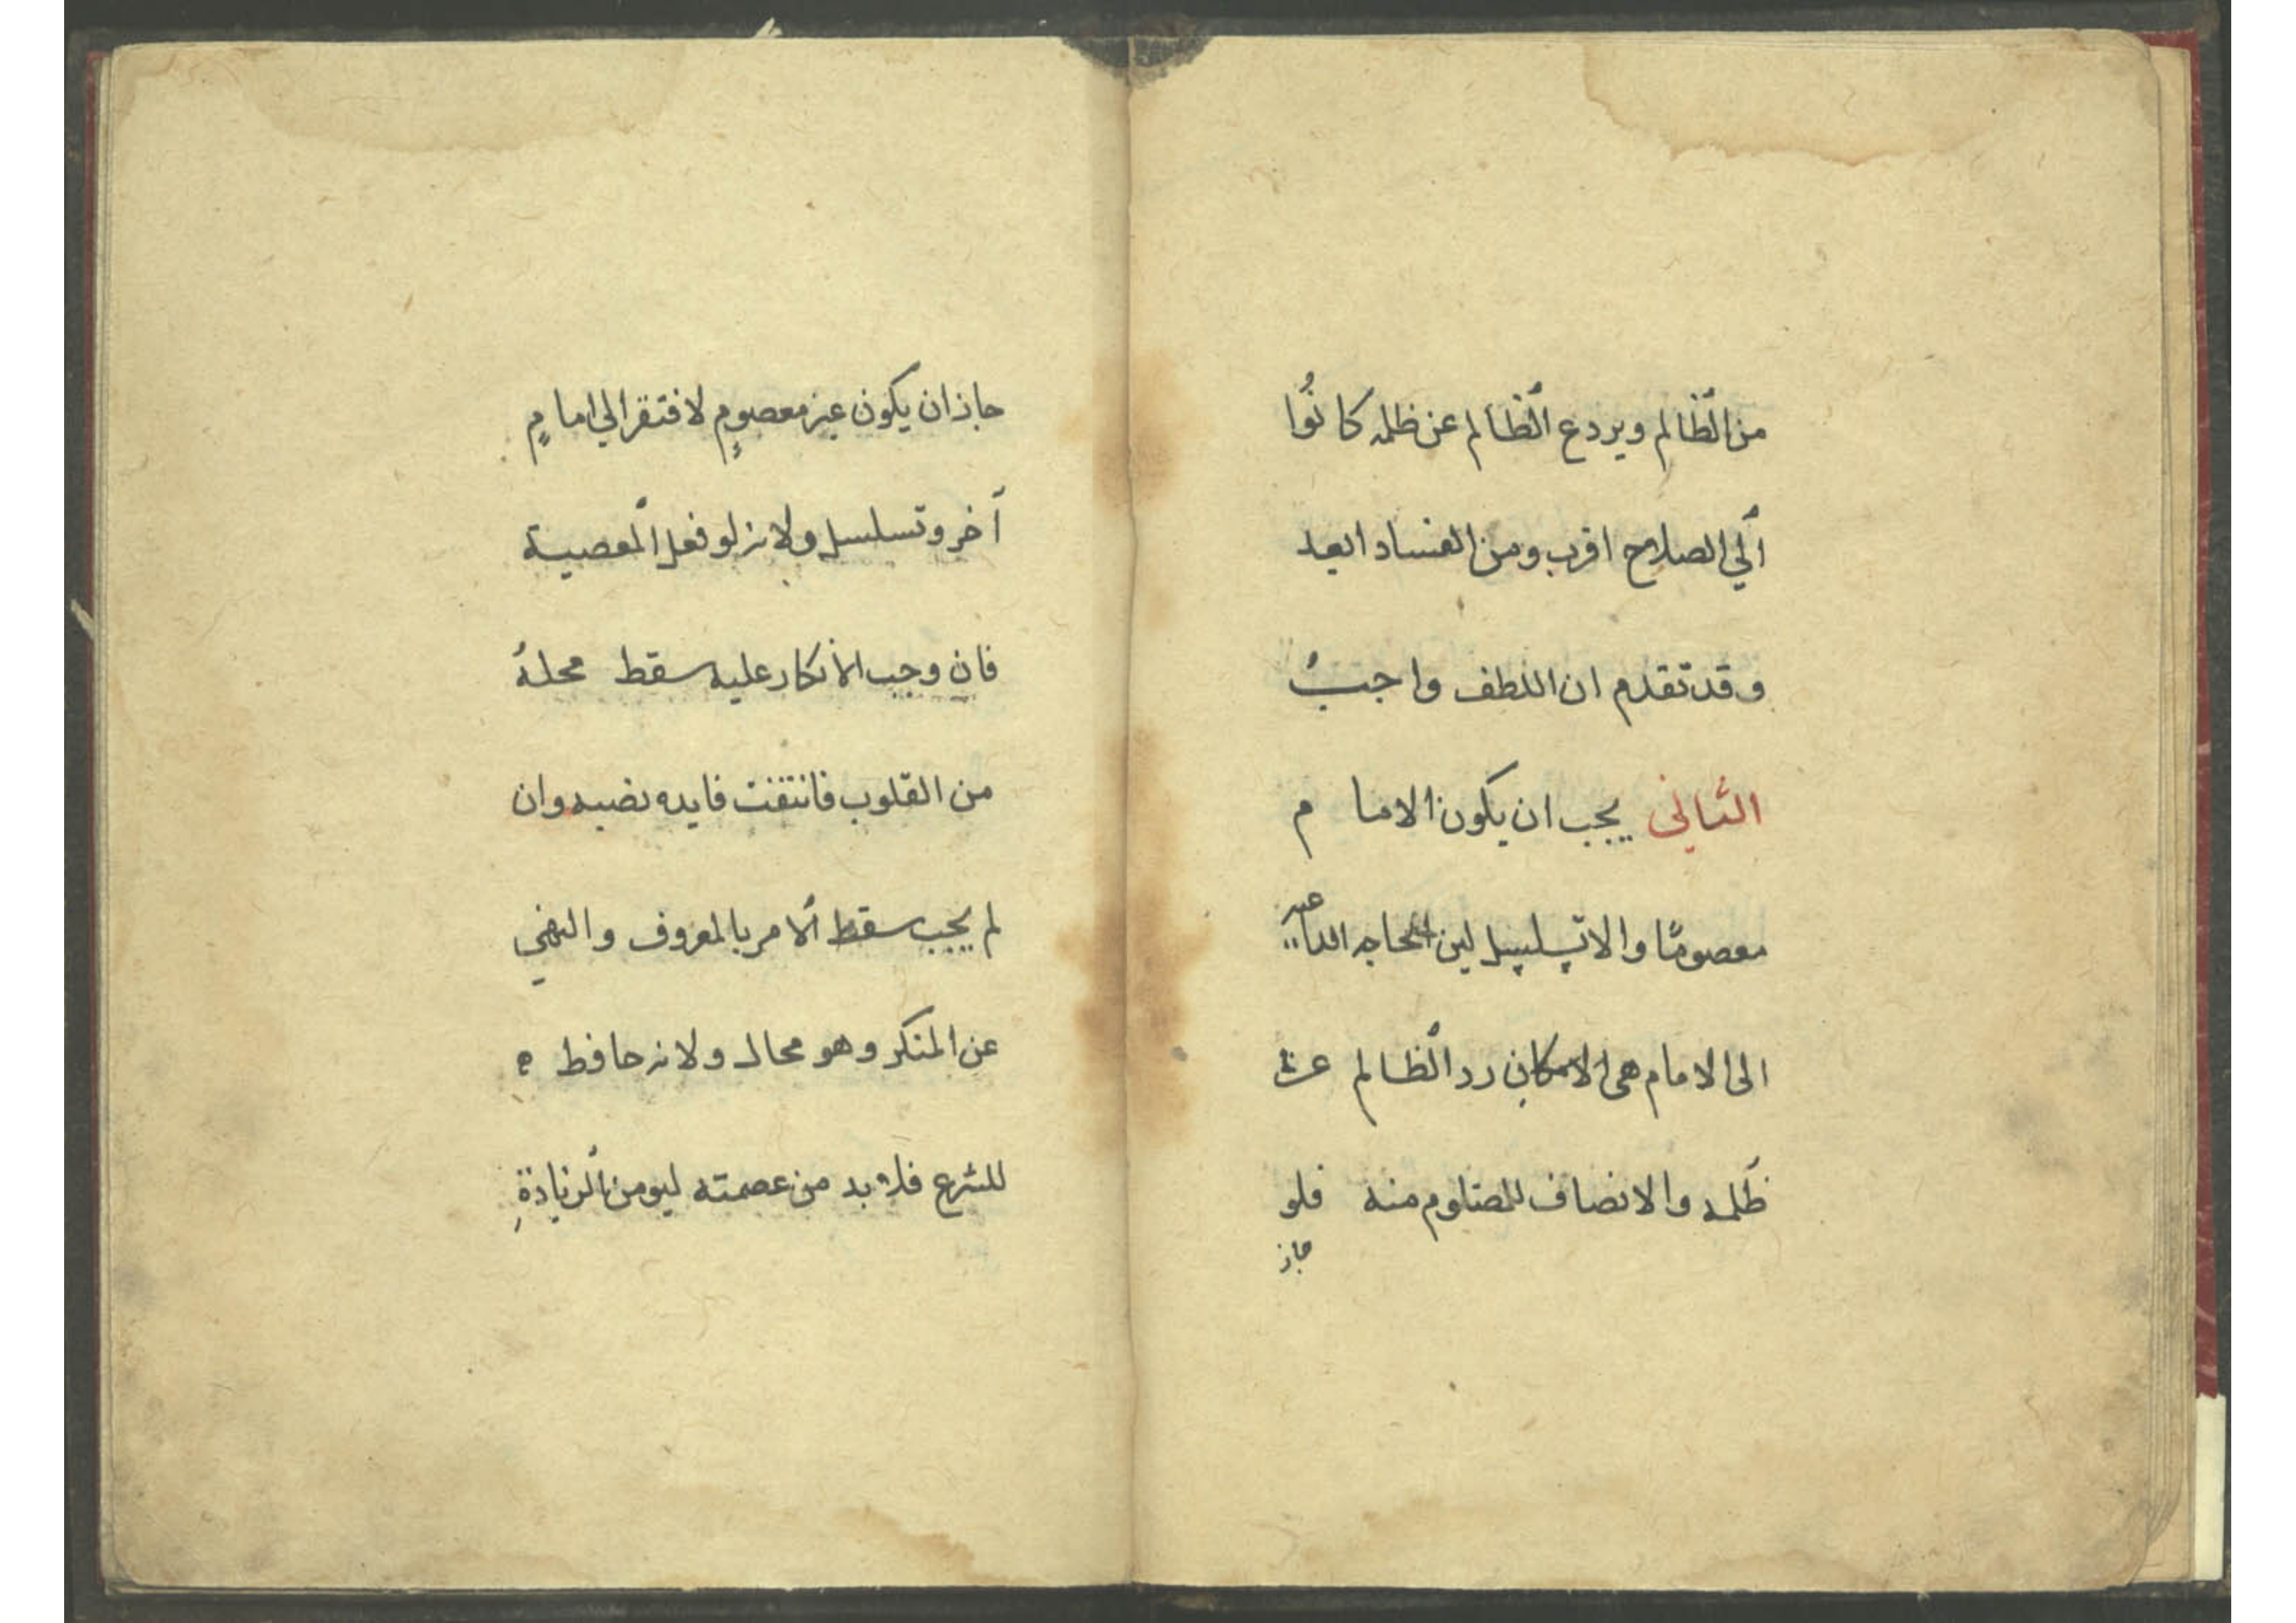 من الظالم ويردع الظالم عن ظلمه كانُوا
الي الصلاح اقرب ومن الفساد ابعد
وقد تقدم ان اللطف واجبٌ
الثاني يجب ان يكون الاما م
معصومًا والا تسلسل لين الحاجه الداعيه
الى الامام هى الامكان رد الظالم عن
ظلمه والانصاف للمضلوم منه فلو
جاز
جاز ان يكون غير معصومٍ لافتقر الي امامٍ
آخر وتسلسل ولانه لو فعل المعصية
فان وجب الانكار عليه سقط محلهُ
من القلوب فانتفت فايده نصبه وان
لم يجب سقط الامر بالمعروف والنهي
عن المنكر وهو محال ولانه حافظ
للشرع فلا بد من عصمته ليومن الزيادةِ